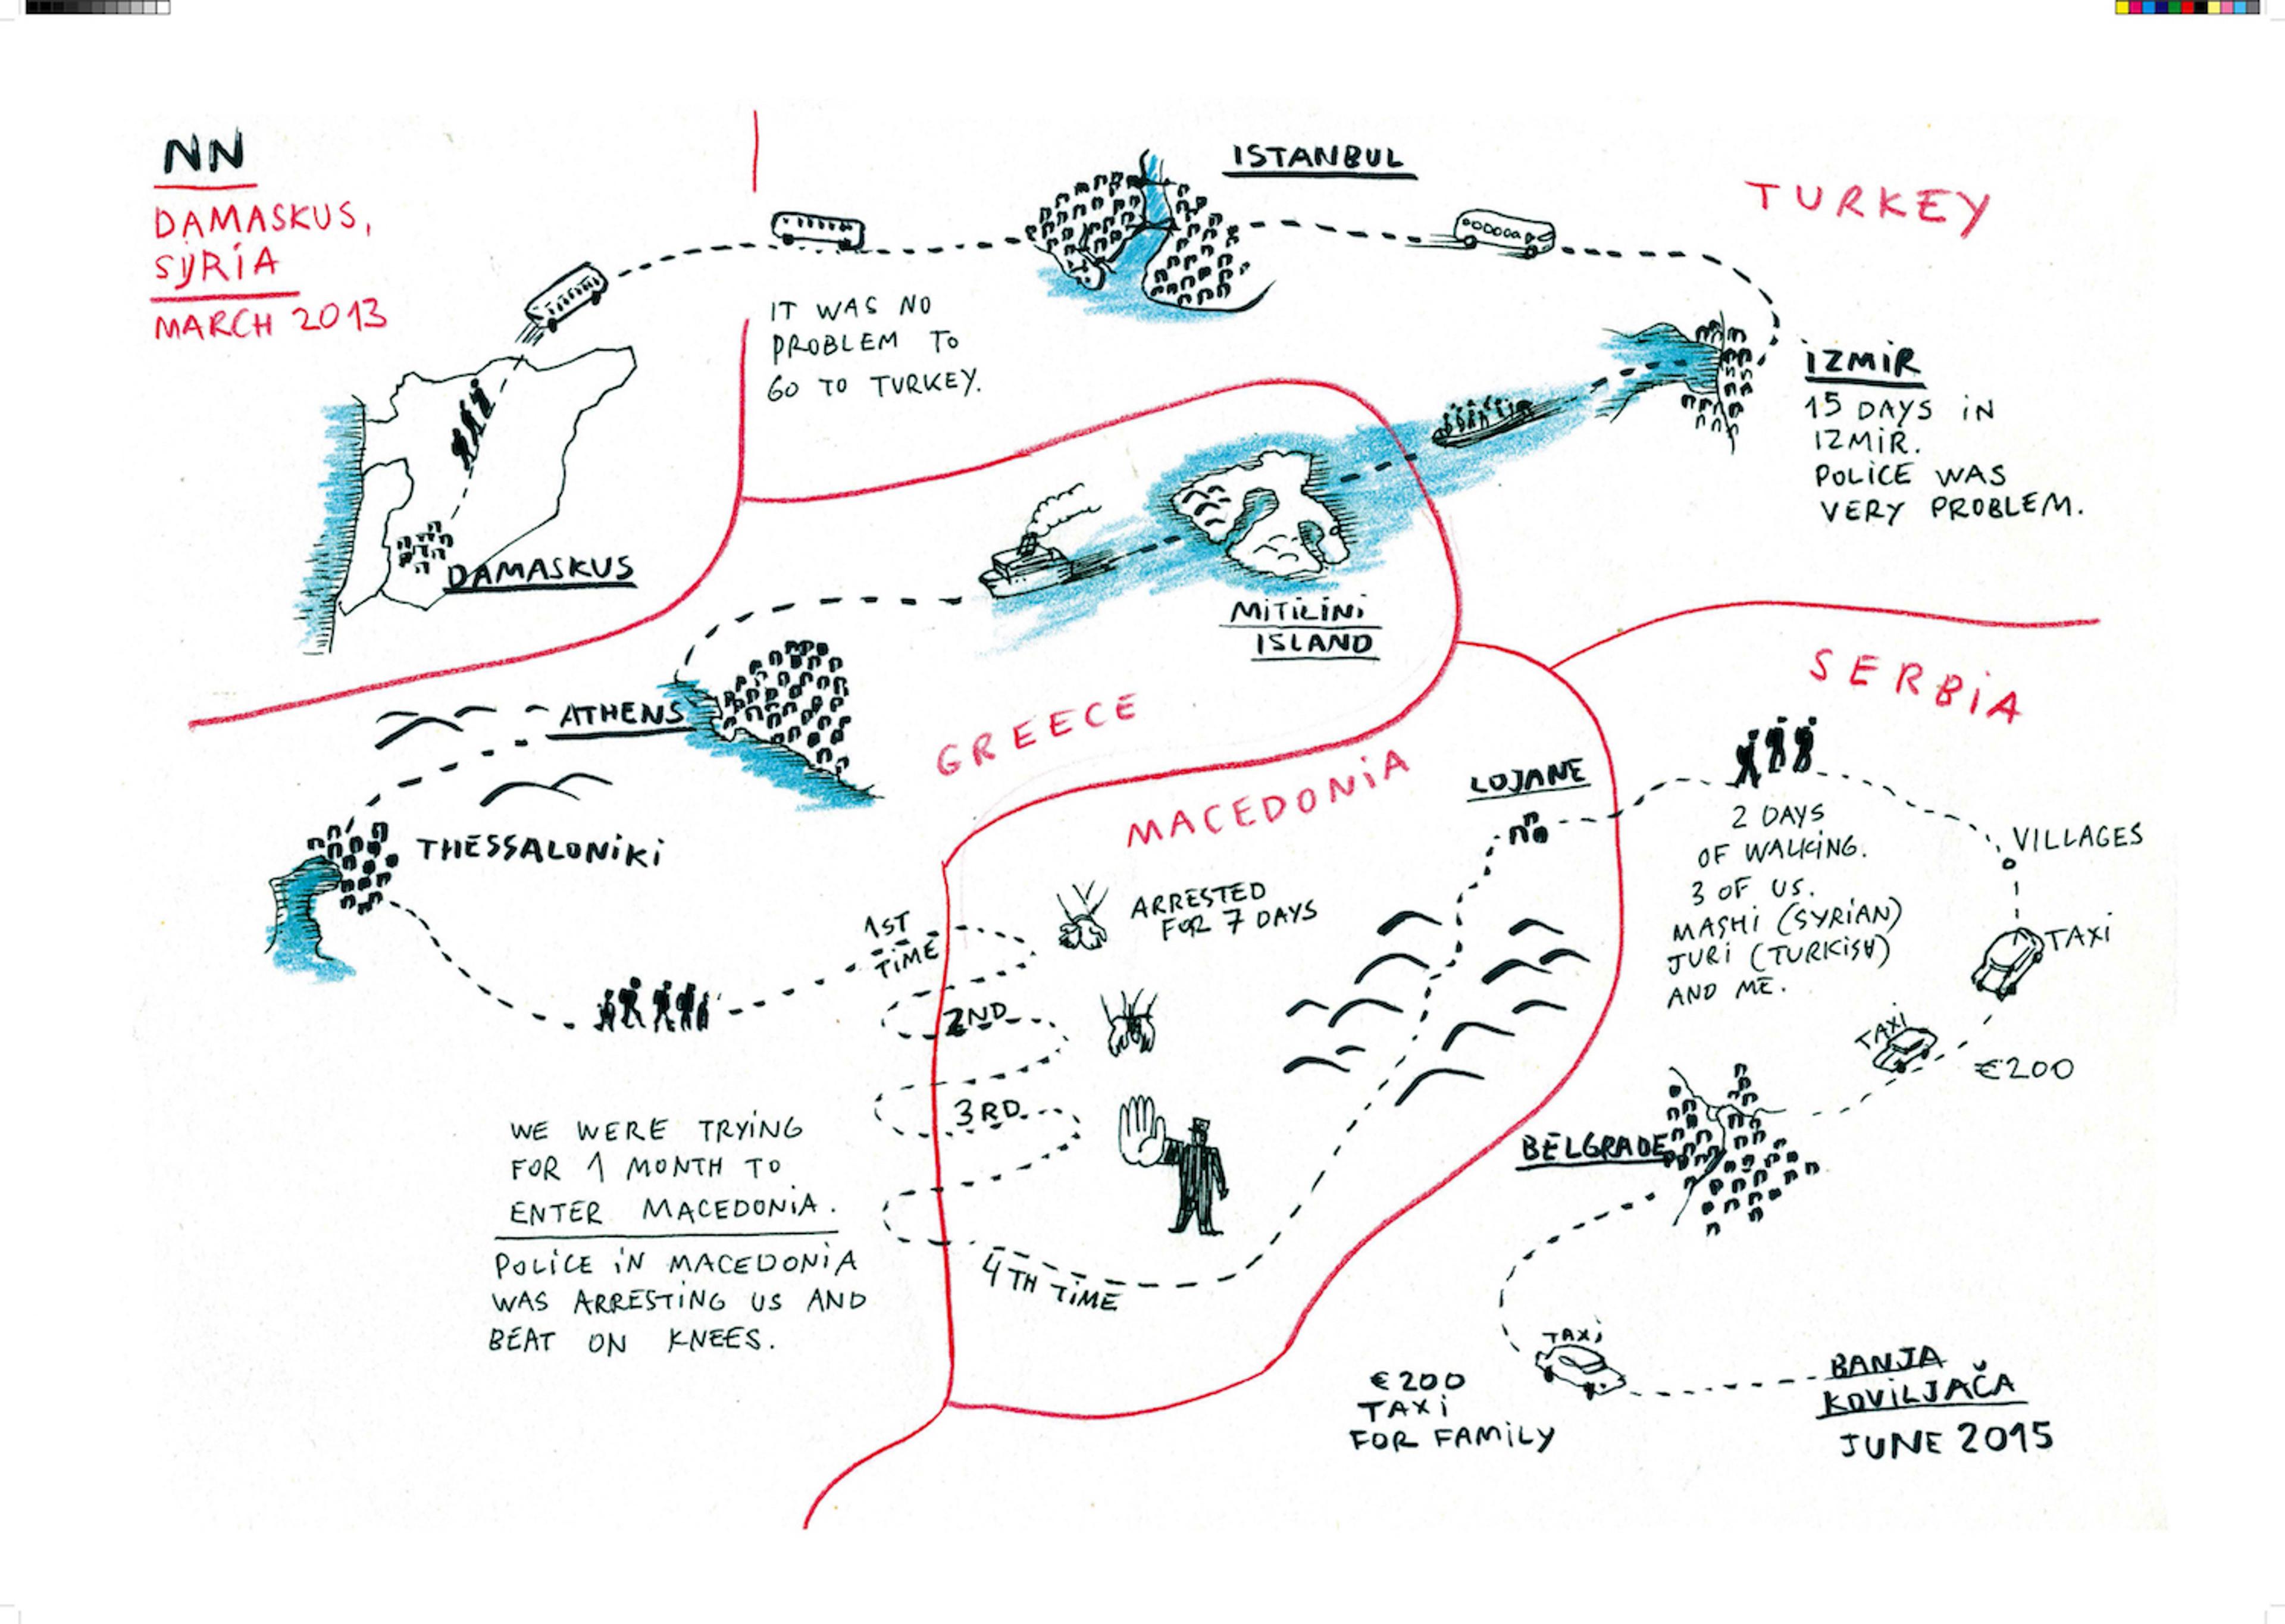 NN
DAMASKUS,
SYRIA
MARCH 2013
DAMASKUS
IT WAS NO
PROBLEM TO
GO TO TURKEY.
ISTANBUL
TURKEY
IZMIR
15 DAYS IN
IZMIR.
POLICE WAS
VERY PROBLEM.
MITILINI
ISLAND
GREECE
ATHENS
THESSALONIKI
WE WERE TRYING
FOR 1 MONTH TO
ENTER MACEDONIA.
POLICE IN MACEDONIA
WAS ARRESTING US AND
BEAT ON KNEES.
MACEDONIA
1ST
TIME
ARRESTED
FOR 7 DAYS
2ND
3RD
4TH TIME
LOJANE
SERBIA
2 DAYS
OF WALKING.
3 OF US.
MASHI (SYRIAN)
JURI (TURKISH)
AND ME.
VILLAGES
TAXI
TAXI
€200
BELGRADE
TAXI
€200
TAXI
FOR FAMILY
BANJA
KOVILJAČA
JUNE 2015